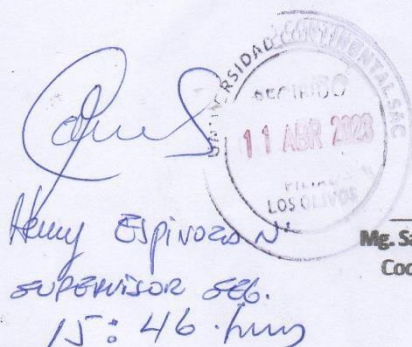 UNIVERSIDAD CONTINENTAL SAC
RECIBIDO
11 ABR 2023
FILIAL
LOS OLIVOS
Henry Espinoza N.
SUPERVISOR SEG.
15:46 hrs
Mg. Sa
Coo